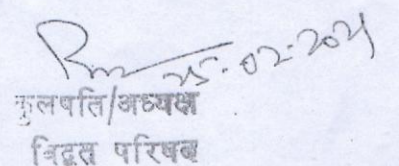 25-02-2021
कुलपति/अध्यक्ष
विद्वत परिषद